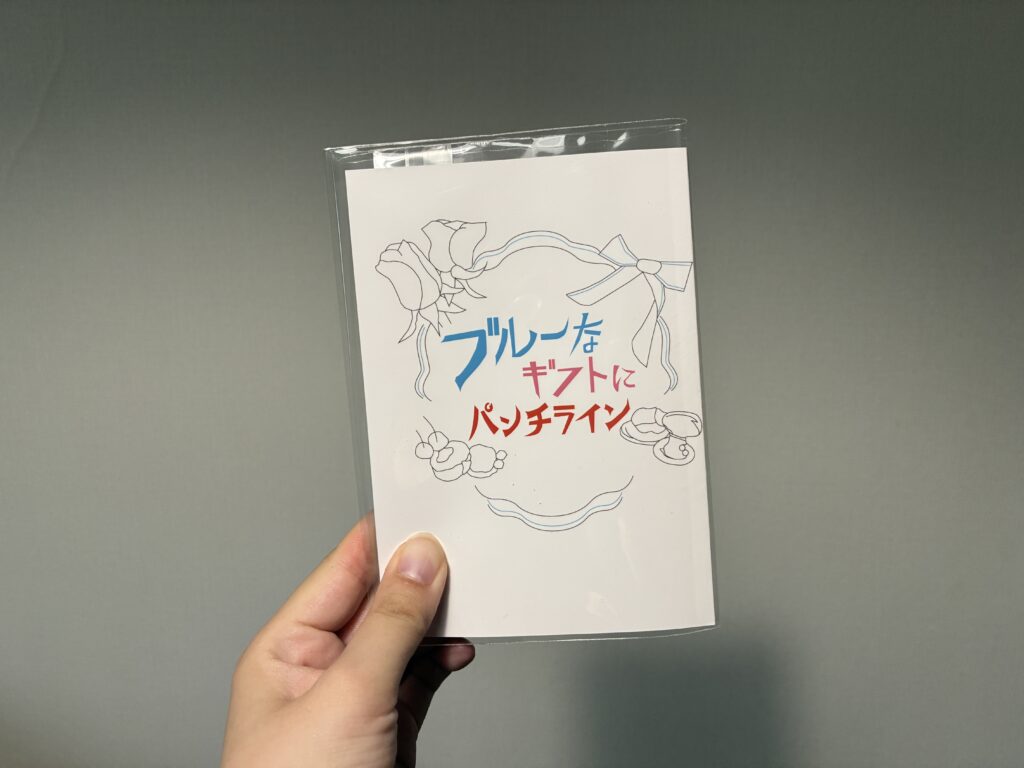 ブルーな
ギフトに
パンチライン